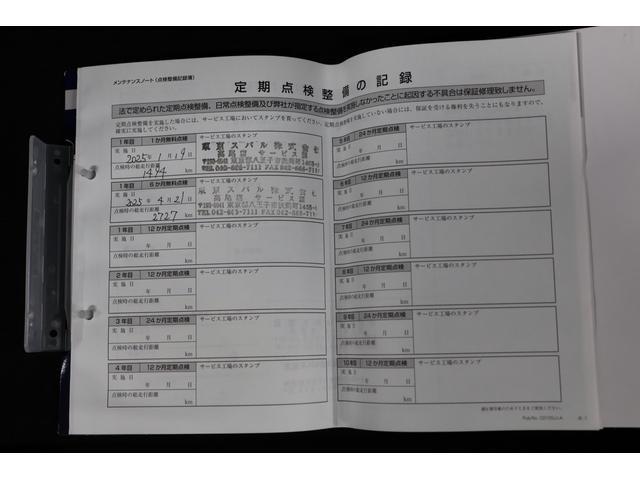 メンテナンスノート（点検整備記録簿）
定期点検整備の記録
法で定められた定期点検整備、日常点検整備及び弊社が指定する点検整備を実施しなかったことに起因する不具合は保証修理致しません。
定期点検整備を実施した場合には、サービス工場においてスタンプを貰ってください。定期点検整備を実施していない場合には、保証を受ける権利を失うことにもなりますので、
確実に実施してください。
1年目 1か月無料点検 サービス工場のスタンプ
実施日
2025年1月19日
点検時の総走行距離
1494 km
東京スバル株式会社
高尾店 サービス課
1年目 6か月無料点検 サービス工場のスタンプ
実施日
2025年4月21日
点検時の総走行距離
2727 km
東京スバル株式会社
高尾店 サービス課
1年目 12か月定期点検 サービス工場のスタンプ
実施日
年 月 日
点検時の総走行距離
km
2年目 12か月定期点検 サービス工場のスタンプ
実施日
年 月 日
点検時の総走行距離
km
3年目 24か月定期点検 サービス工場のスタンプ
実施日
年 月 日
点検時の総走行距離
km
4年目 12か月定期点検 サービス工場のスタンプ
実施日
年 月 日
点検時の総走行距離
km
5年目 24か月定期点検 サービス工場のスタンプ
実施日
年 月 日
点検時の総走行距離
km
6年目 12か月定期点検 サービス工場のスタンプ
実施日
年 月 日
点検時の総走行距離
km
7年目 24か月定期点検 サービス工場のスタンプ
実施日
年 月 日
点検時の総走行距離
km
8年目 12か月定期点検 サービス工場のスタンプ
実施日
年 月 日
点検時の総走行距離
km
9年目 24か月定期点検 サービス工場のスタンプ
実施日
年 月 日
点検時の総走行距離
km
10年目 12か月定期点検 サービス工場のスタンプ
実施日
年 月 日
点検時の総走行距離
km